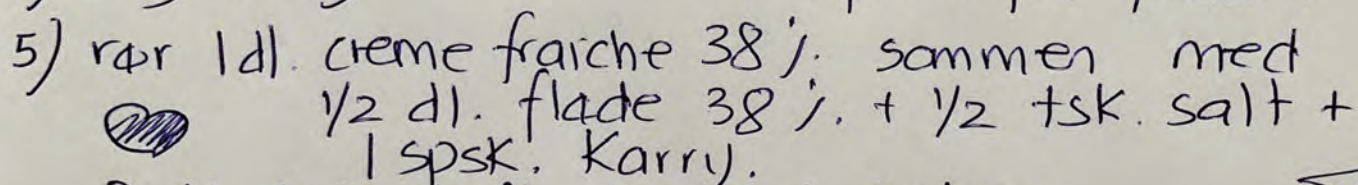 5) rør 1dl. creme fraiche 38 %. sammen med
1/2 dl. fløde 38 %. + 1/2 tsk. salt +
1 spsk. Karry.